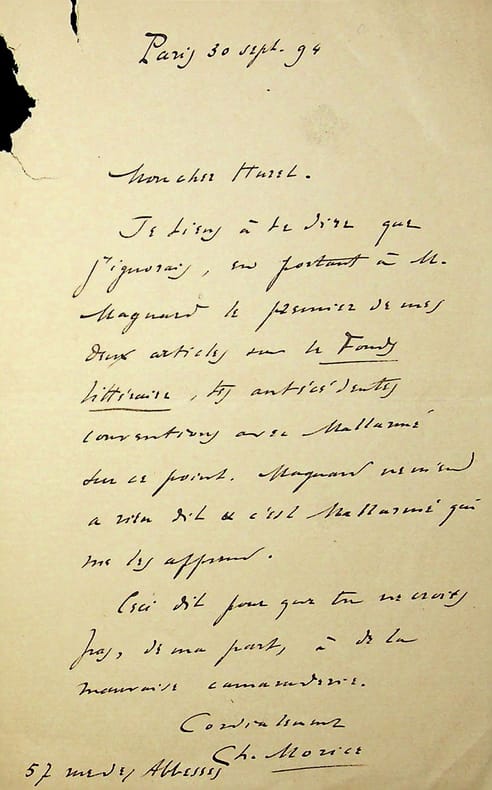 Paris 30 sept. 94
Mon cher Huret.
Je tiens à te dire que
j'ignorais, en portant à M.
Magnard le premier de mes
deux articles sur le Fonds
littéraire, tes antécédentes
conventions avec Mallarmé
sur ce point. Magnard ne m'en
a rien dit & c'est Mallarmé qui
me les apprend.
Ceci dit pour que tu ne croies
pas, de ma part, à de la
mauvaise camaraderie.
Cordialement
Ch. Morice
57 rue des Abbesses